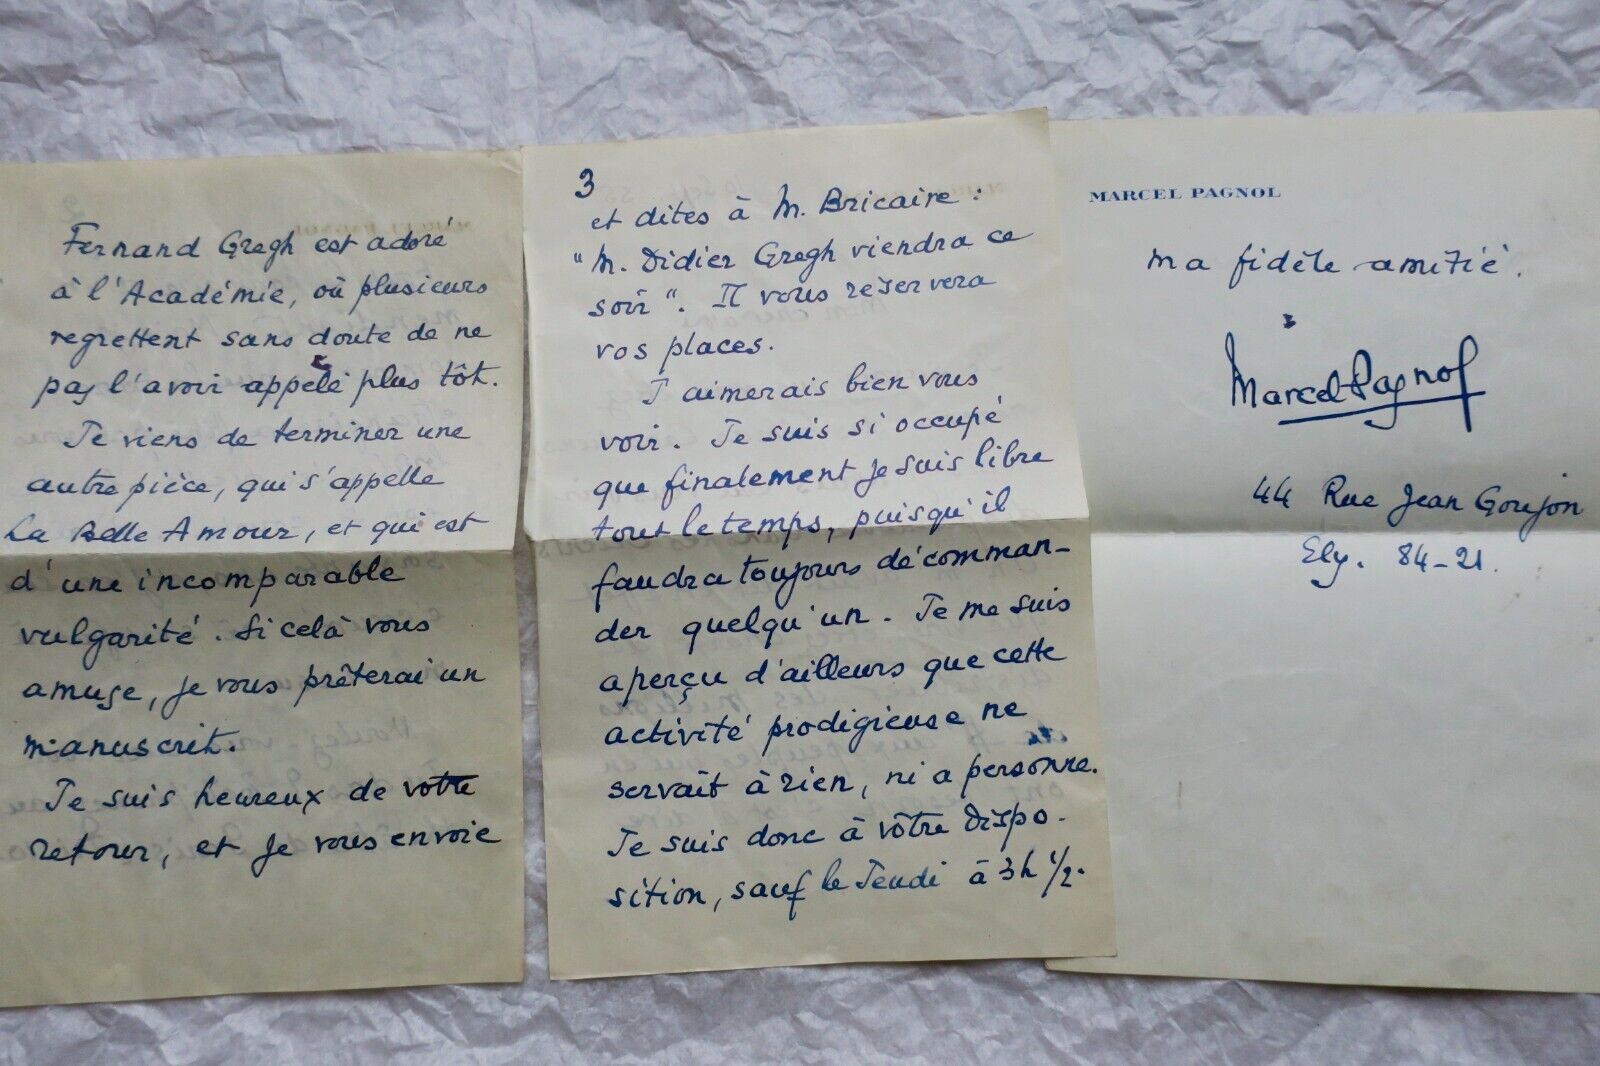 Fernand Gregh est adoré
à l'Académie, où plusieurs
regrettent sans doute de ne
pas l'avoir appelé plus tôt.
Je viens de terminer une
autre pièce, qui s'appelle
La Belle Amour, et qui est
d'une incomparable
vulgarité. Si celà vous
amuse, je vous prêterai un
manuscrit.
Je suis heureux de votre
retour, et je vous envoie
3
et dites à M. Bricaire :
"M. Didier Gregh viendra ce
soir". Il vous réservera
vos places.
J aimerais bien vous
voir. Je suis si occupé
que finalement je suis libre
tout le temps, puisqu'il
faudra toujours décomman-
der quelqu'un. Je me suis
aperçu d'ailleurs que cette
activité prodigieuse ne
servait à rien, ni a personne.
Je suis donc à vôtre dispo-
sition, sauf le Jeudi à 3h 1/2.
MARCEL PAGNOL
ma fidèle amitié.
Marcel Pagnol
44 Rue Jean Goujon
Ely. 84-21.